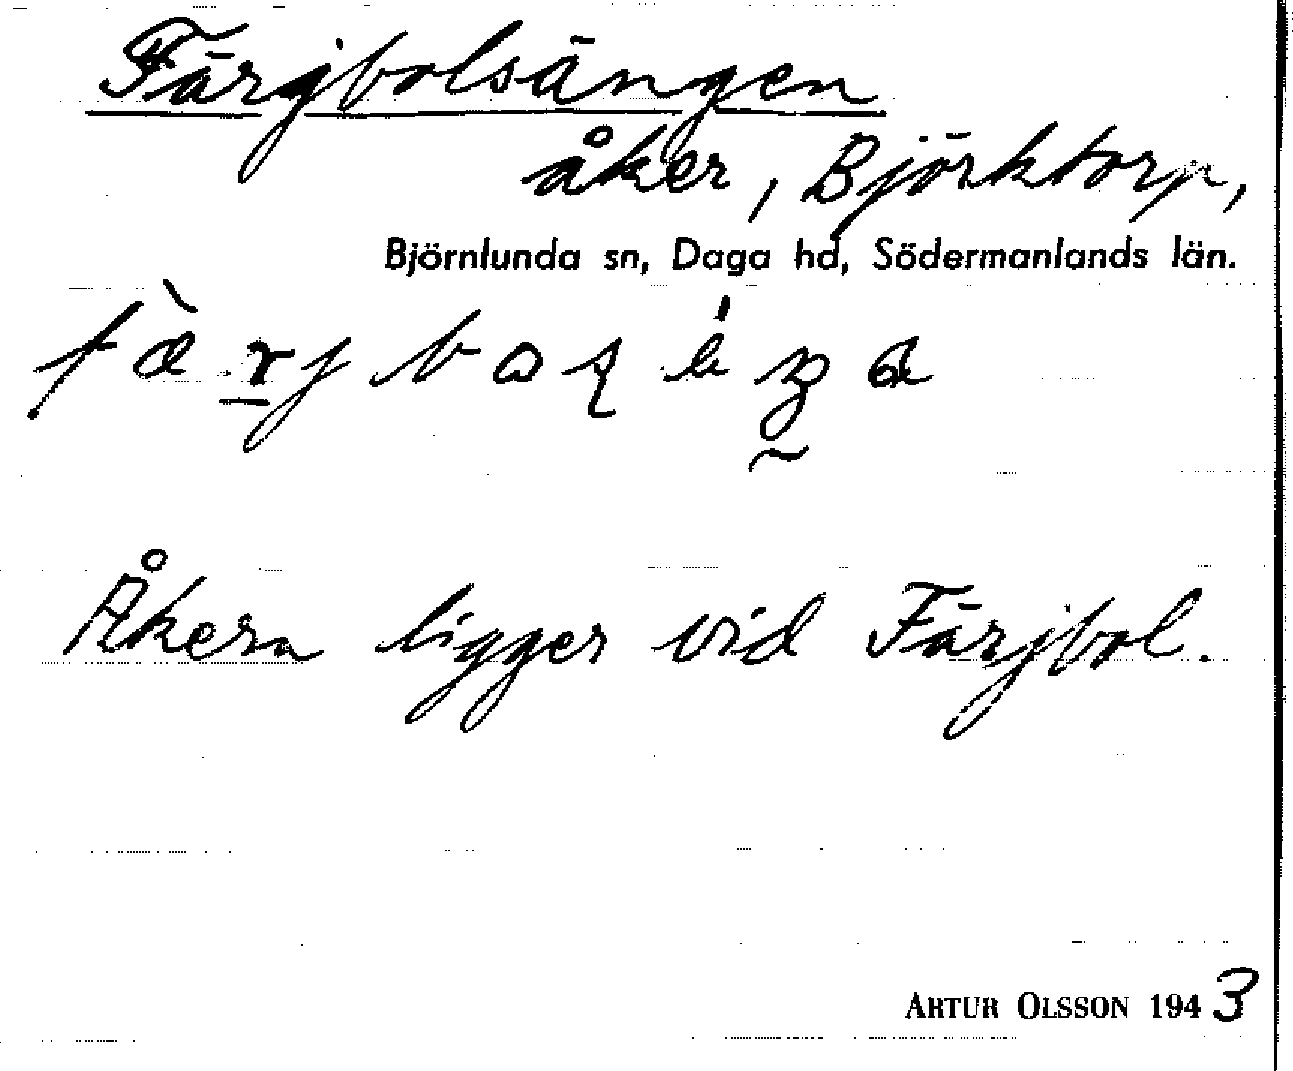 Färjbolsängen
åker, Björktorp,
Björnlunda sn, Daga hd, Södermanlands län.
Åkern ligger vid Färjbol.
ARTUR OLSSON 1943